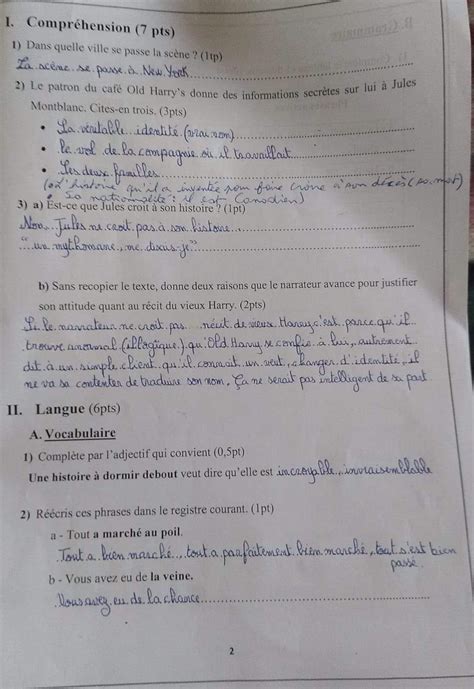 I. Compréhension (7 pts)
1) Dans quelle ville se passe la scène ? (1tp)
La scène se passe à New York
2) Le patron du café Old Harry's donne des informations secrètes sur lui à Jules
Montblanc. Cites-en trois. (3pts)
• Sa véritable identité (vrai nom)
• le vol de la compagnie où il travaillait
• Ses deux familles
(• L'histoire qu'il a inventée pour faire croire à son décès (sa mort)
• sa nationalité : il est Canadien)
3) a) Est-ce que Jules croit à son histoire ? (1pt)
Non, Jules ne croit pas à son histoire
"un mythomane, me disais-je"
b) Sans recopier le texte, donne deux raisons que le narrateur avance pour justifier
son attitude quant au récit du vieux Harry. (2pts)
Si le narrateur ne croit pas récit de vieux Harry, c'est parce qu'il
trouve anormal (illogique) qu'Old Harry se confie à lui, autrement
dit à un simple client qu'il connait un veut changer d'identité, il
ne va se contenter de traduire son nom. Ça ne serait pas intelligent de sa part
II. Langue (6pts)
A. Vocabulaire
1) Complète par l'adjectif qui convient (0,5pt)
Une histoire à dormir debout veut dire qu'elle est incroyable, invraisemblable
2) Réécris ces phrases dans le registre courant. (1pt)
a - Tout a marché au poil.
Tout a bien marché, tout a parfaitement bien marché, tout s'est bien
passé
b - Vous avez eu de la veine.
Vous avez eu de la chance
2